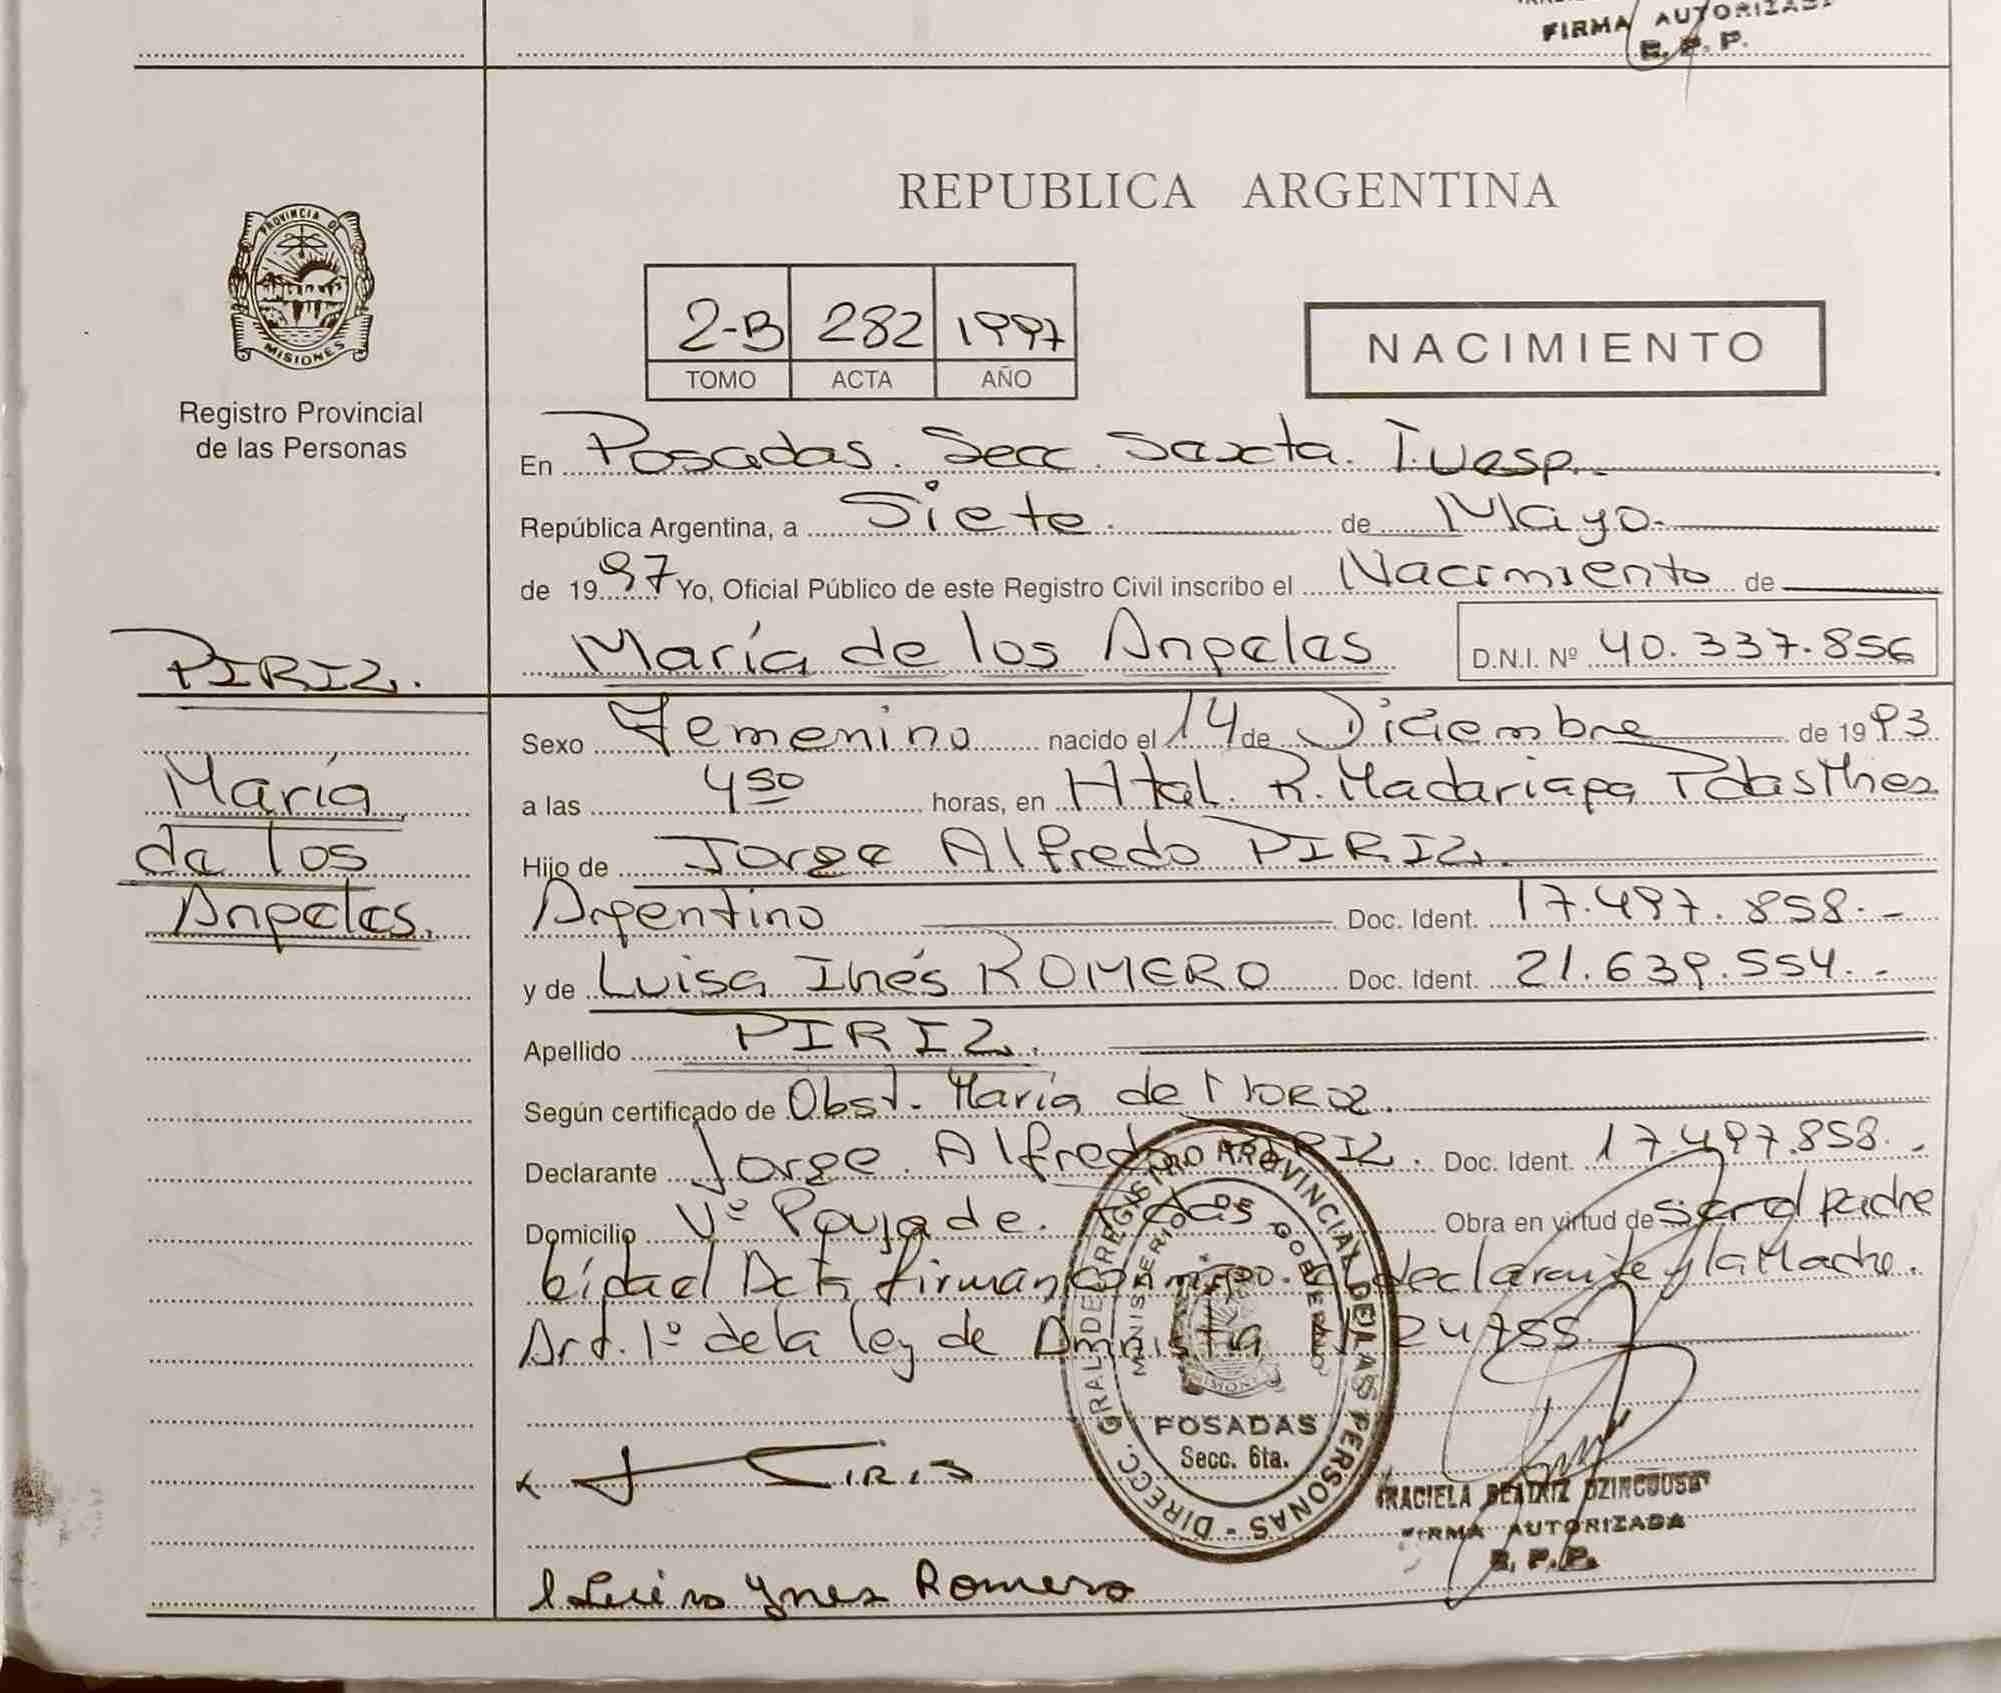 FIRMA AUTORIZADA
R. P. P.
PROVINCIA DE
MISIONES
Registro Provincial
de las Personas
REPUBLICA ARGENTINA
2-B 282 1997
TOMO ACTA AÑO
NACIMIENTO
En Posadas. Secc. Sexta. T. Vesp.
República Argentina, a Siete. de Mayo.
de 1997 Yo, Oficial Público de este Registro Civil inscribo el Nacimiento de
María de los Angeles D.N.I. Nº 40.337.856
PIRIZ.
María
de los
Angeles.
Sexo Femenino nacido el 14 de Diciembre de 1993
a las 4 50 horas, en Htal. R. Madariaga Pdas Mnes
Hijo de Jorge Alfredo PIRIZ.
Argentino Doc. Ident. 17.497.858.-
y de Luisa Inés ROMERO Doc. Ident. 21.639.554.-
Apellido PIRIZ.
Según certificado de Obst. María de
Declarante Jorge. Alfredo PIRIZ. Doc. Ident. 17.497.858.-
Domicilio Vº Poujade. Pdas Obra en virtud de ser el padre
Leída el Acta firman conmigo. el declarante y la Madre.
Art. 1º de la ley de Amnistía 24755.
x J PIRIZ
Luisa Ynes Romero
DIRECC. GRAL. DE REGISTRO PROVINCIAL DE LAS PERSONAS -
MINISTERIO DE GOBIERNO
MISIONES
POSADAS
Secc. 6ta.
GRACIELA BEATRIZ
FIRMA AUTORIZADA
R. P. P.